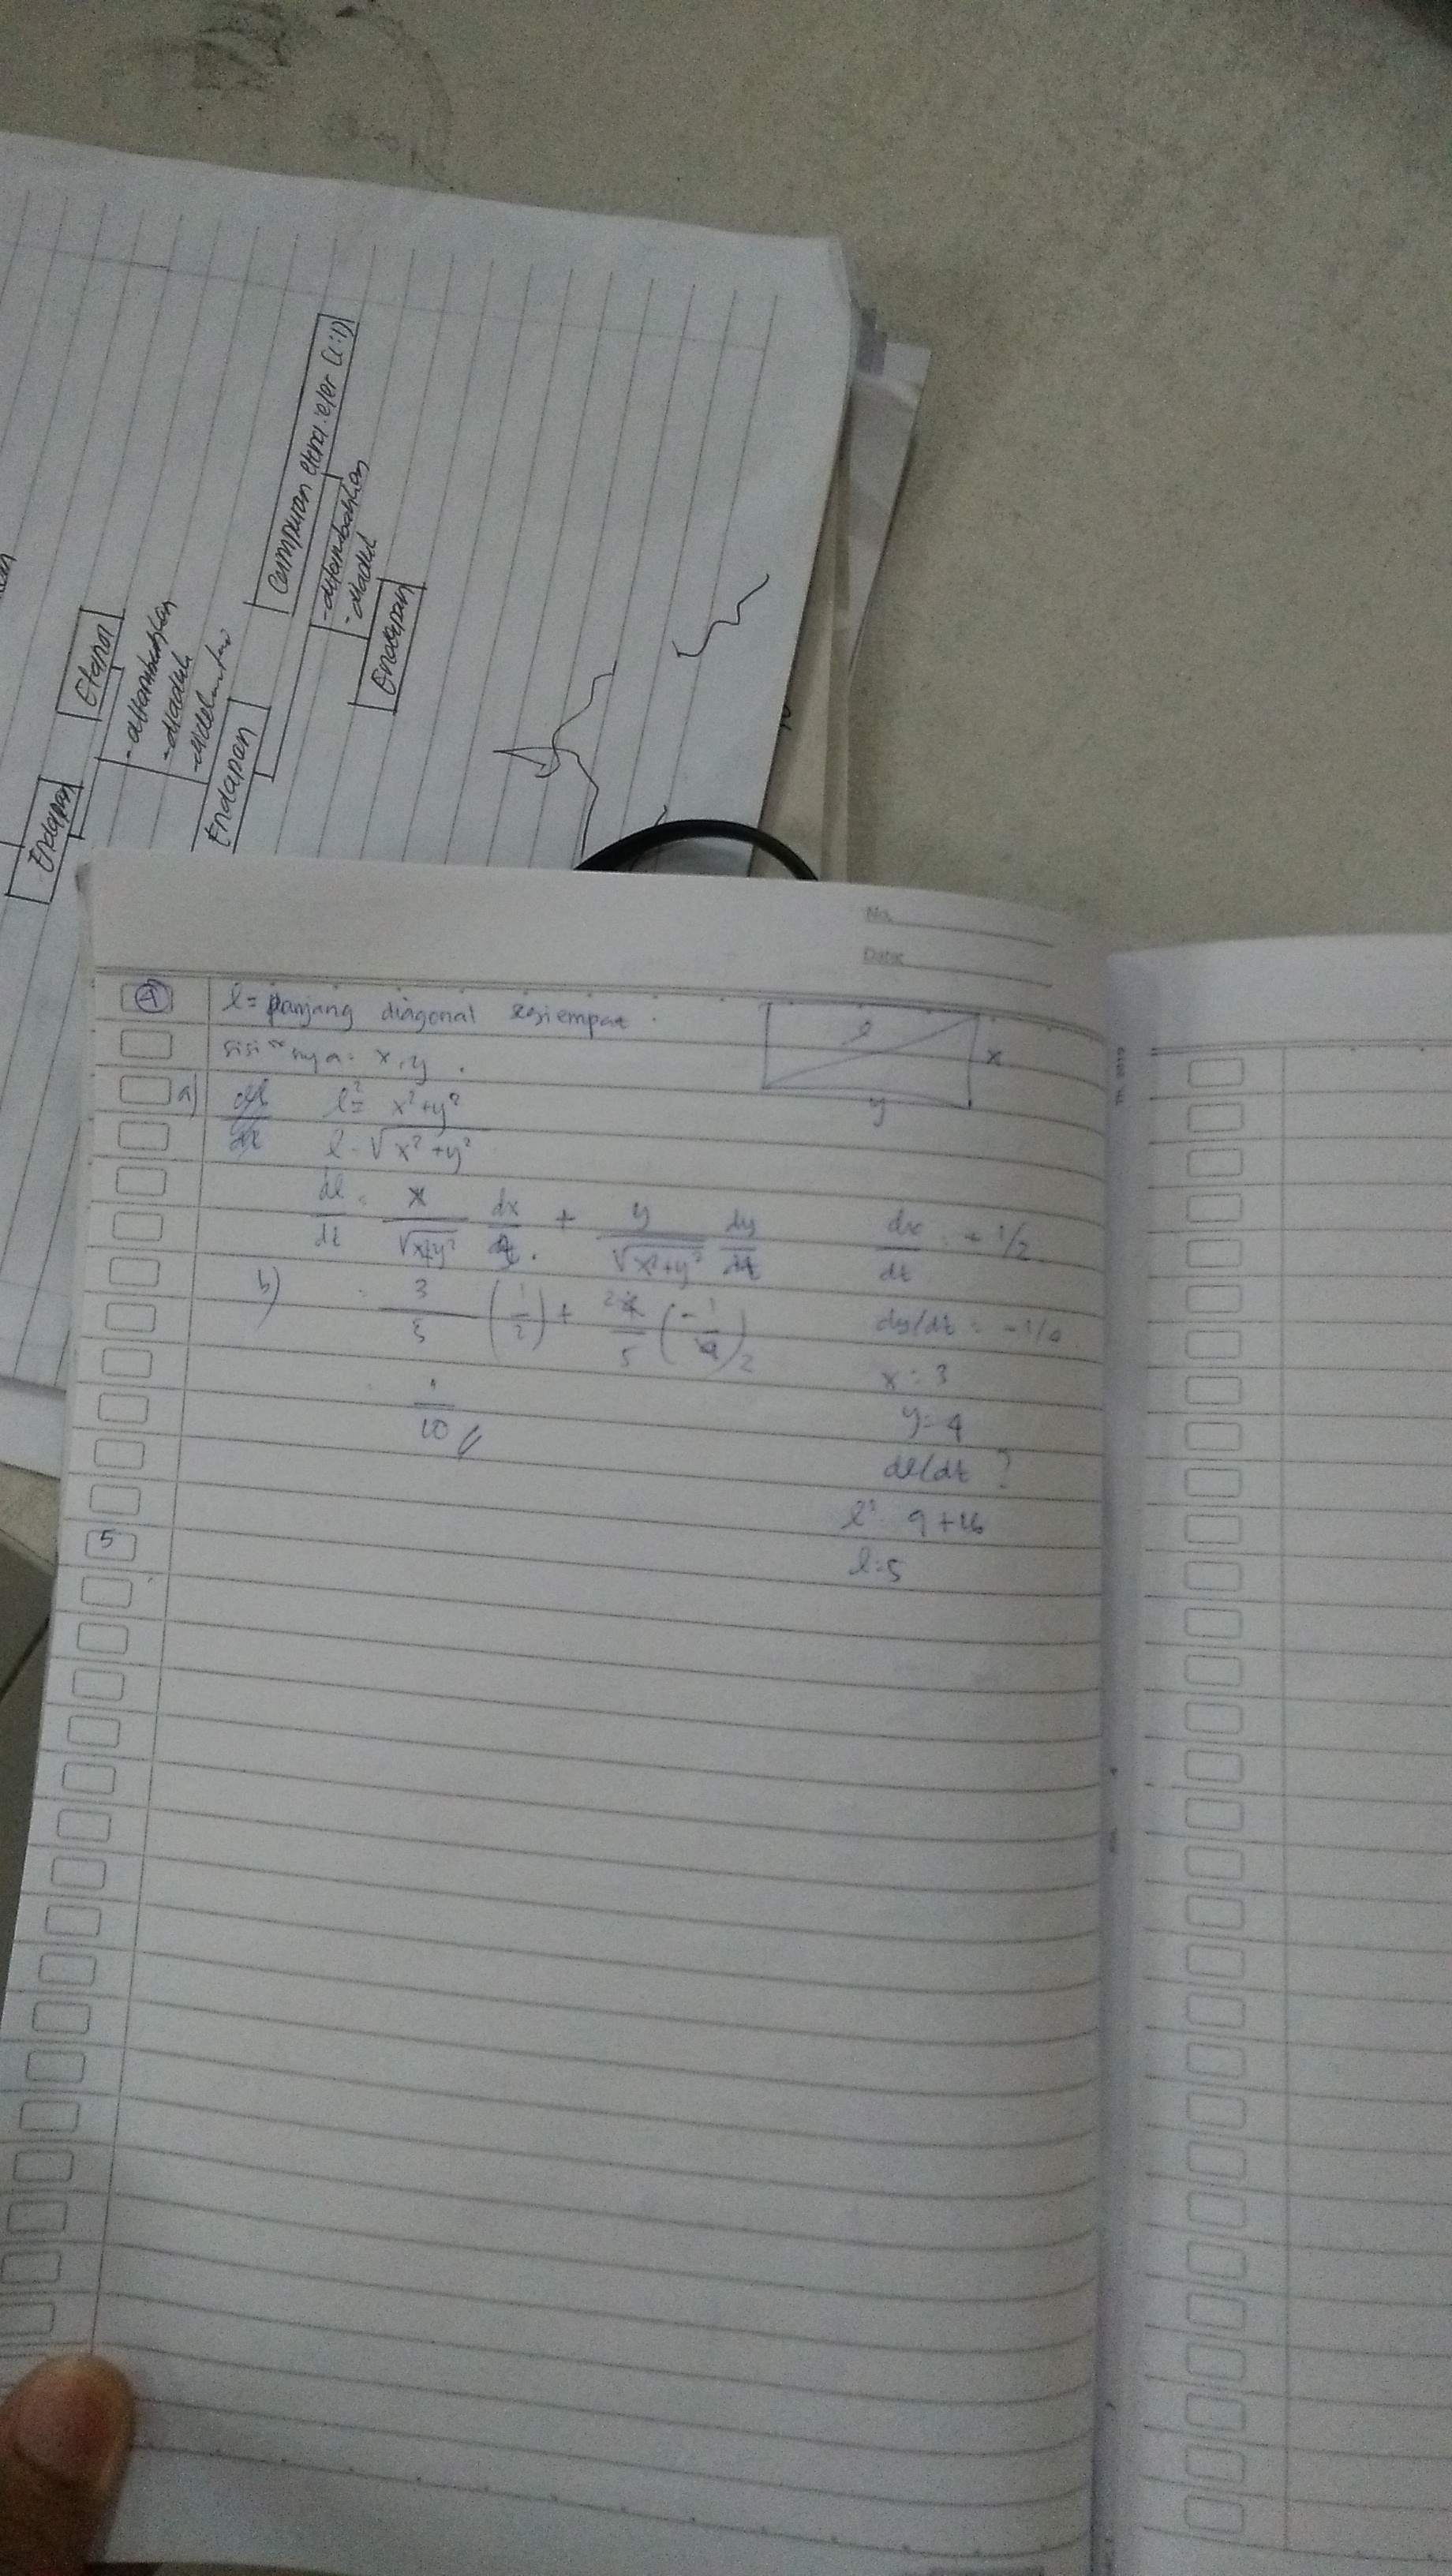 Etanol
- ditambahkan
- diaduk
Endapan
Endapan
Campuran etanol:eter (1:1)
- ditambahkan
- diaduk
Endapan
No.
Date:
4
l = panjang diagonal segiempat.
sisi" nya = x, y.
l
x
y
a) l² = x² + y²
l = √x² + y²
dl/dt = x/√x²+y² dx/dt + y/√x²+y² dy/dt
dx/dt = + 1/2
b) = 3/5 (1/2) +
dy/dt = -1/4
x = 3
1/10
y = 4
dl/dt ?
l² = 9 + 16
5
l = 5